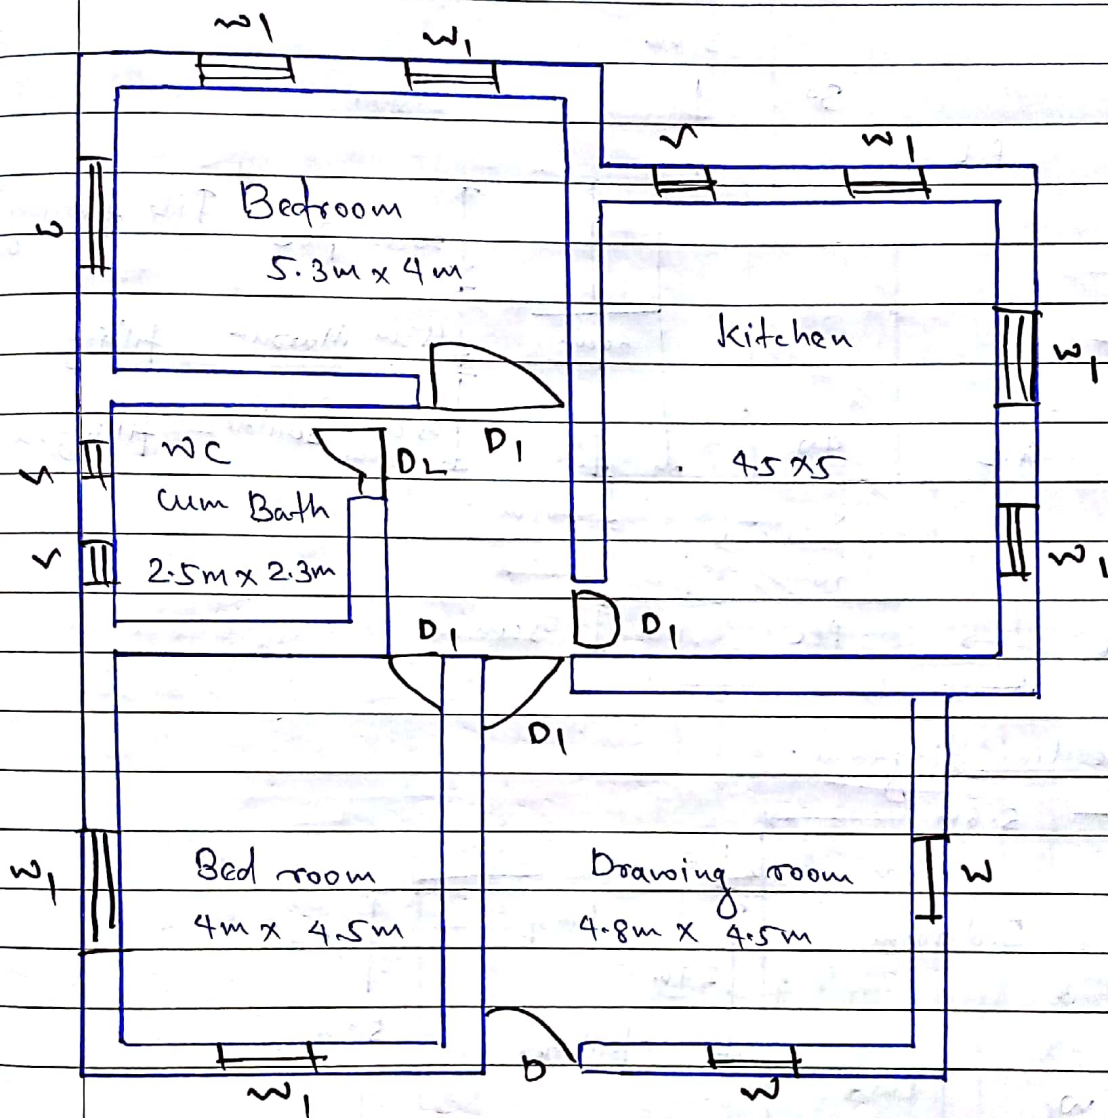 W1
W1
V
W1
W
Bedroom
5.3m x 4m
Kitchen
4.5 x 5
W1
W1
D1
V
WC
D2
Cum Bath
2.5m x 2.3m
V
D1
D1
D1
W1
Bed room
4m x 4.5m
Drawing room
4.8m x 4.5m
W
W1
D
W